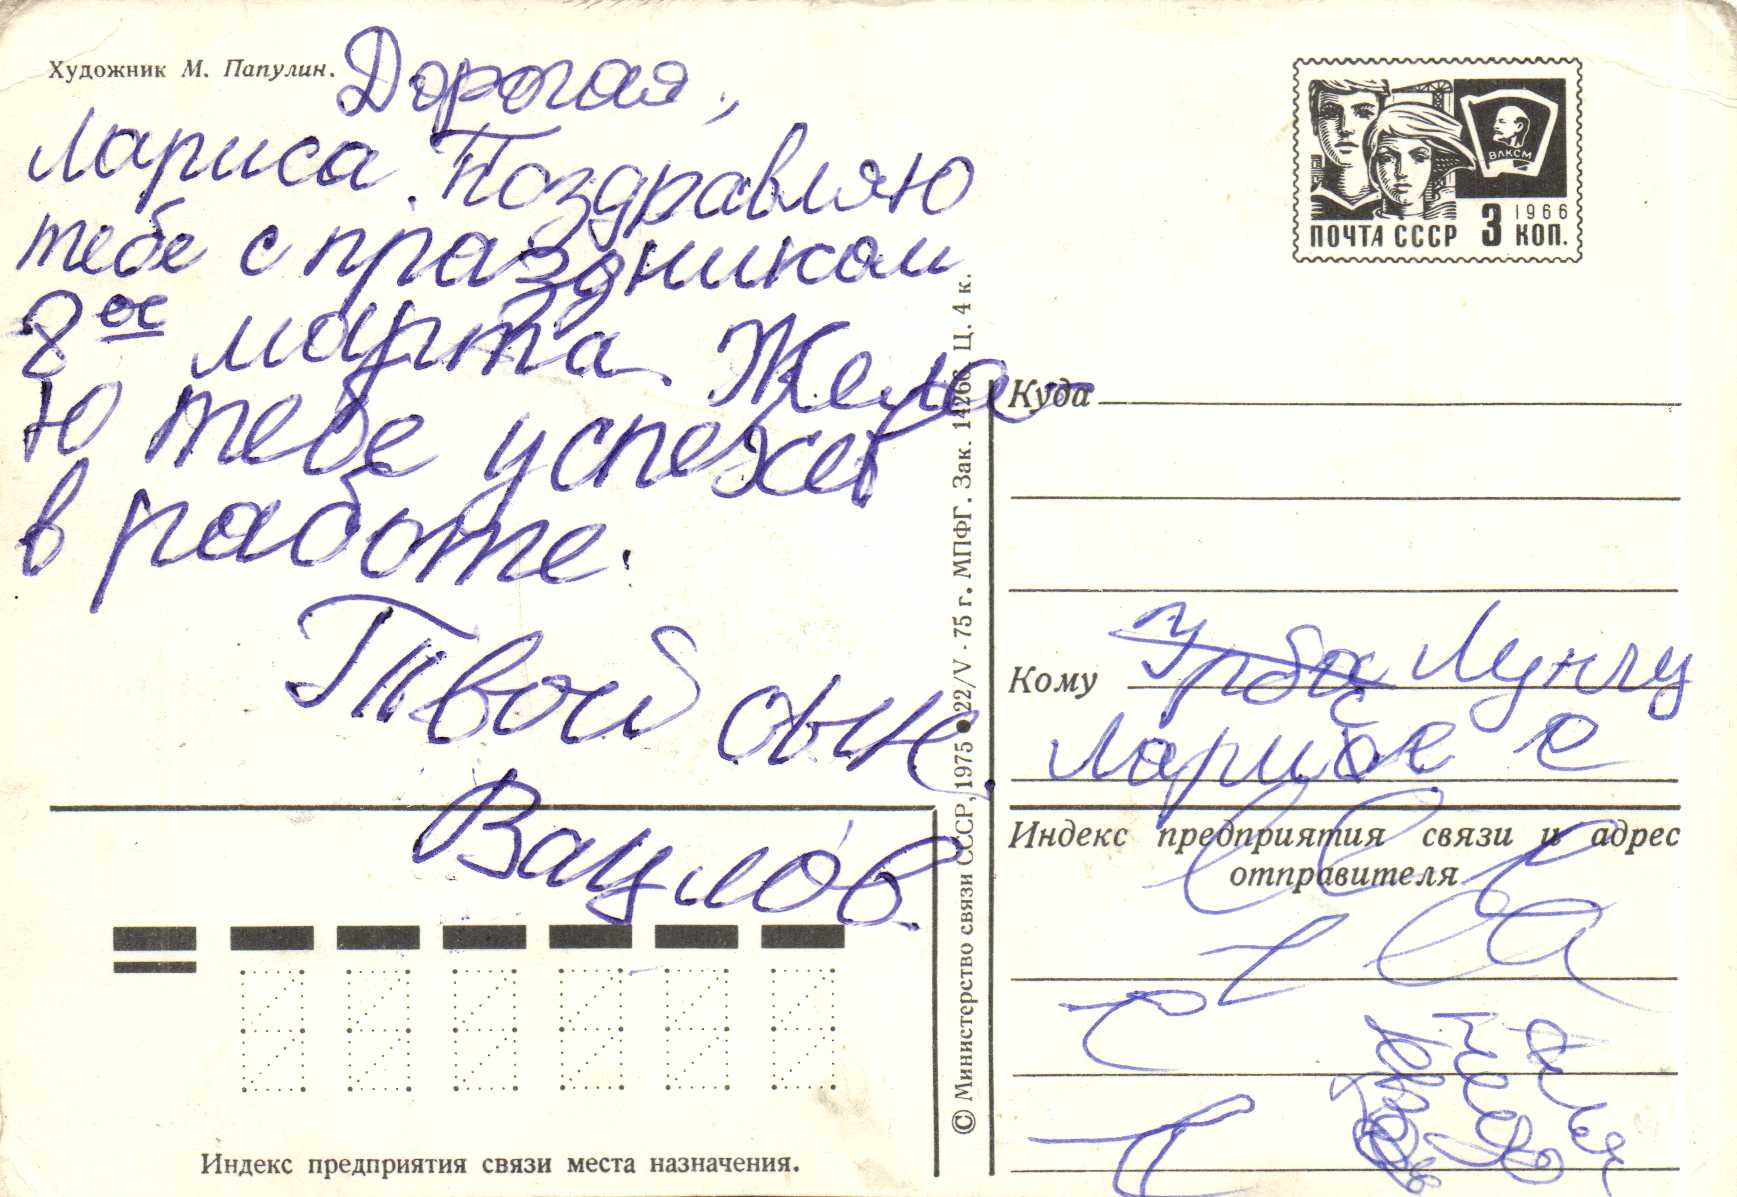 Художник М. Папулин.
Дорогая,
Лариса. Поздравляю
тебе с праздником
8ое марта. Жела
ю тебе успехов
в работе.
Твой сын
Вацлов.
Индекс предприятия связи места назначения.
© Министерство связи СССР, 1975 ● 22/V - 75 г. МПФГ. Зак. 14266 Ц. 4 к.
ВЛКСМ
1966
ПОЧТА СССР 3 КОП.
Куда
Кому Урба
Ларисе е
Индекс предприятия связи и адрес
отправителя